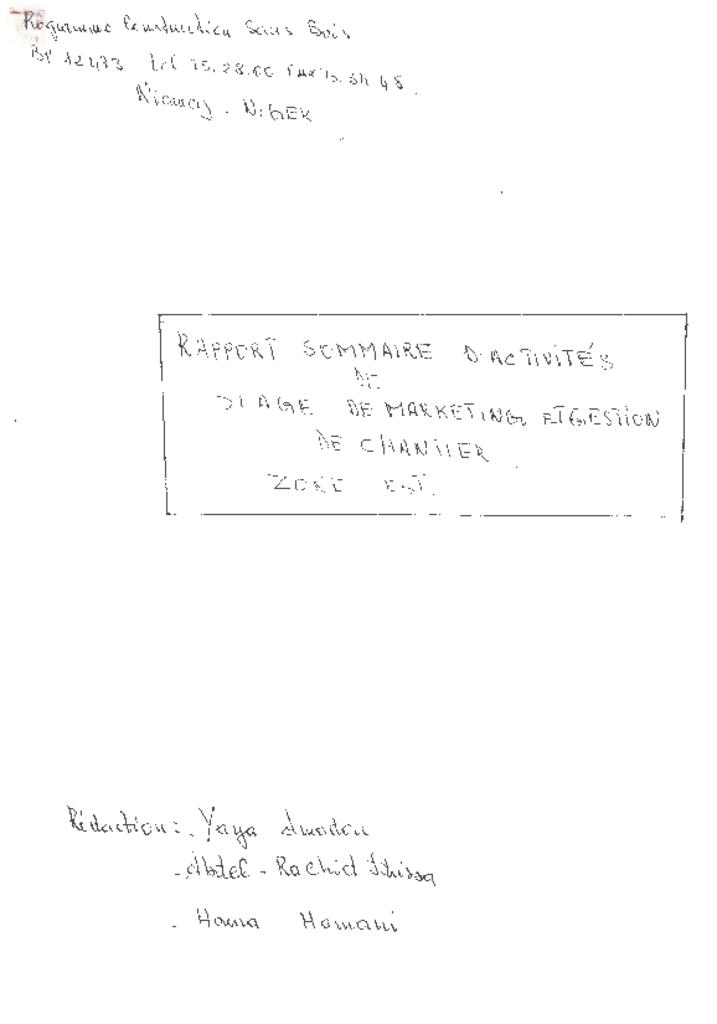 Programme Construction Sans Bois
BP 12433 tel 75.28.00 fax 75.
Niamey - NIGER
RAPPORT SOMMAIRE D'ACTIVITÉS
DE
STAGE DE MARKETING ET GESTION
DE CHANTIER
ZONE EST.
Rédaction: . Yaya Amadou
- Abdel - Rachid Ihissa
- Hama Hamani